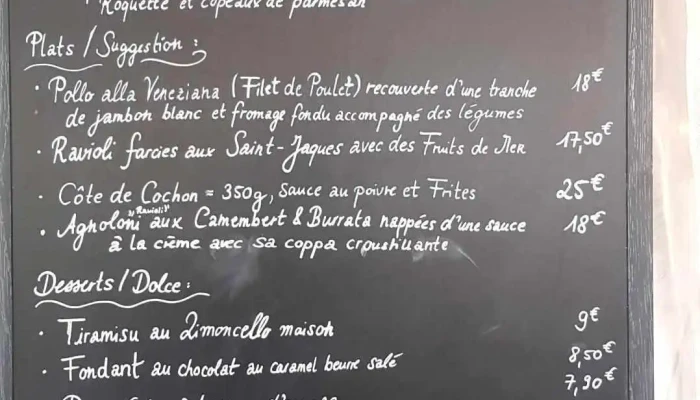 Roquette et copeaux de parmesan
Plats / Suggestion :
· Pollo alla Veneziana (Filet de Poulet) recouverte d'une tranche 18€
de jambon blanc et fromage fondu accompagné des légumes
· Ravioli farcies aux Saint-Jaques avec des Fruits de Mer 17,50€
· Côte de Cochon = 350g, sauce au poivre et Frites 25€
"Ravioli"
· Agnoloni aux Camembert & Burrata nappées d'une sauce 18€
à la crème avec sa coppa croustillante
Desserts / Dolce :
· Tiramisu au Limoncello maison 9€
· Fondant au chocolat au caramel beurre salé 8,50€
7,90€